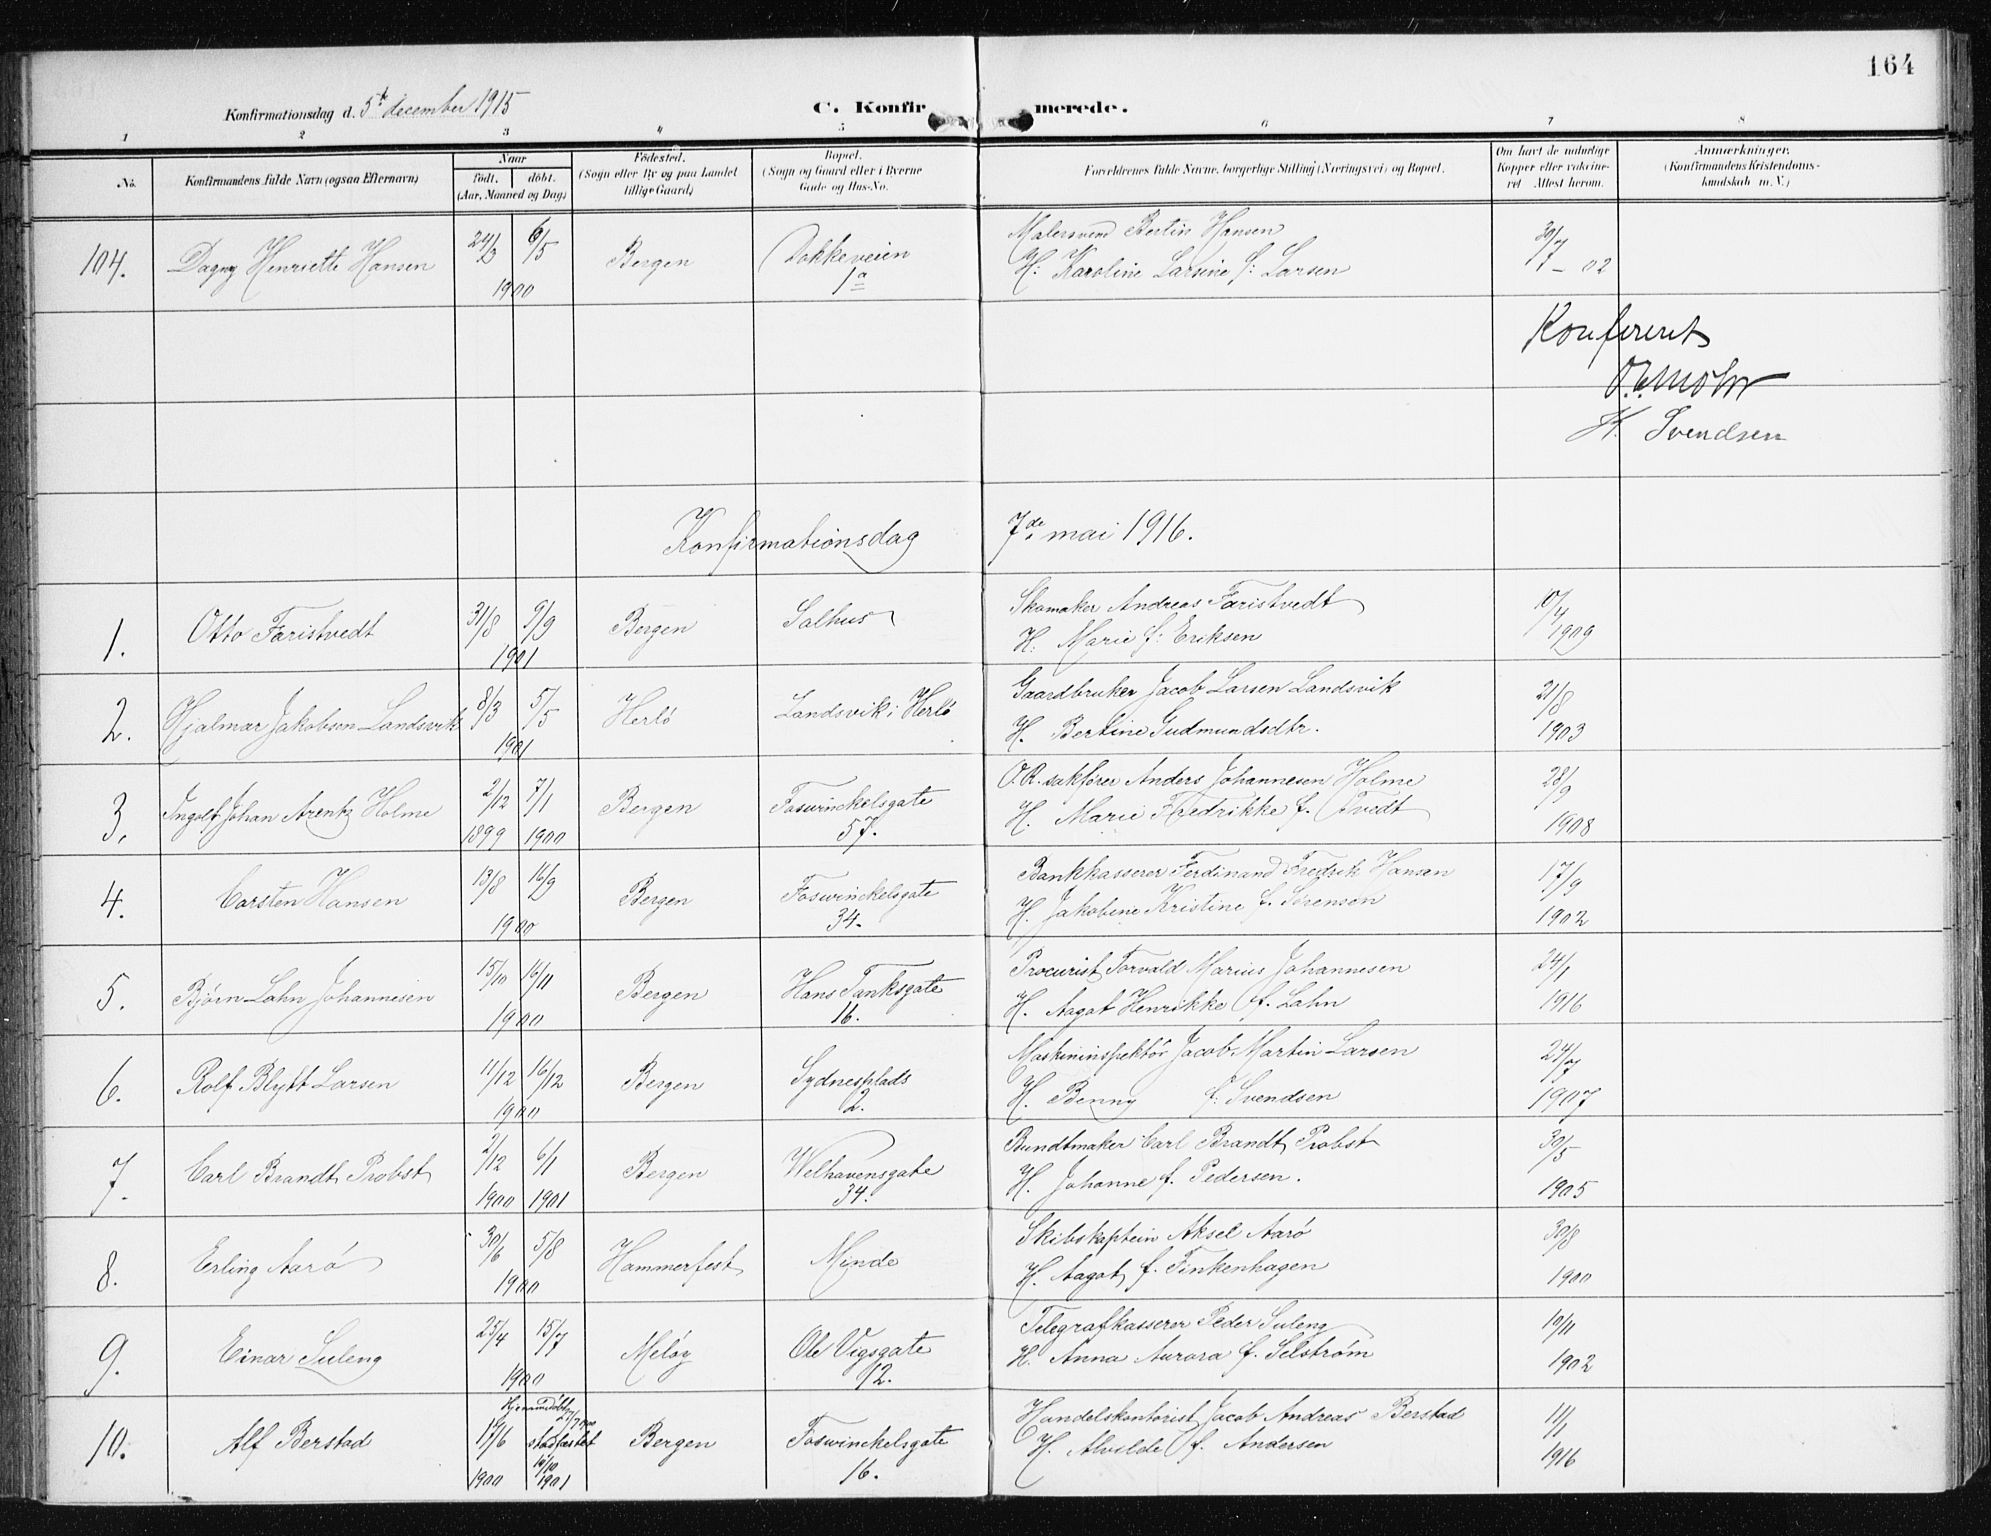 164
Konfirmationsdag d. 5te december 1915
C. Konfirmerede.
1 2 3 4 5 6 7 8
No.
Konfirmandens fulde Navn (ogsaa Efternavn)
Naar
födt. döbt.
(Aar, Maaned og Dag)
Födested.
(Sogn eller By og paa Landet
tillige Gaard)
Bopæl.
(Sogn og Gaard eller i Byerne
Gade og Hus-No.
Forældrenes fulde Navne, borgerlige Stilling (Næringsvei) og Bopæl.
Om havt de naturlige
Kopper eller vakcine-
ret. Attest herom.
Anmærkninger.
(Konfirmandens Kristendoms-
kundskab m. V.)
104. Dagny Henriette Hansen 24/3 6/5 1900 Bergen Dokkeveien 1a
Malersvend Bertin Hansen
H: Karoline Larsine f: Larsen
30/7 - 02
Konfereret
H. Svendsen
Konfirmationsdag 7de mai 1916.
1. Otto Faristvedt 31/8 9/9 1901 Bergen Salhus
Skomaker Andreas Faristvedt
H: Marie f: Eriksen
10/4 1909
2. Hjalmar Jakobsen Landsvik 8/3 5/5 1901 Herlö Landsvik i Herlö
Gaardbruker Jacob Larsen Landsvik
H. Bertine Gudmundsdtr.
21/8 1903
3. Ingolf Johan Arentz Holme 2/12 1899 7/1 1900 Bergen Foswinckelsgate 57.
O.R. sakfører Anders Johannesen Holme
H. Marie Fredrikke f. Tvedt
28/9 1908
4. Carsten Hansen 13/8 16/9 1900 Bergen Foswinckelsgate 34.
Bankkasserer Ferdinand Fredrik Hansen
H. Jakobine Kristine f. Sörensen
17/9 1902
5. Bjørn Lahn Johannesen 15/10 16/11 1900 Bergen Hans Tanksgate 16.
Procurist Torvald Marius Johannesen
H. Aagot Henrikke f. Lahn
24/1 1916
6. Rolf Blytt Larsen 11/12 16/12 1900 Bergen Sydnesplads 2.
Maskininspektör Jacob Martin Larsen
H. Benny f: Svendsen
24/7 1907
7. Carl Brandt Probst 2/12 1900 6/1 1901 Bergen Welhavensgate 34.
Bundtmaker Carl Brandt Probst
H. Johanne f. Pedersen.
30/5 1905
8. Erling Aarö 30/6 5/8 1900 Hammerfest Minde
Skibskaptein Aksel Aarö
H. Aagot f. Finkenhagen
30/8 1900
9. Einar Suleng 25/4 15/7 1900 Meløy Ole Vigsgate 12.
Telegrafkasserer Peder Suleng
H. Anna Aurora f. Selström
10/11 1902
10. Alf Berstad 17/6 1900 Hjemmedöbt 27/7 1900 stadfæstet 10/10 1901 Bergen Foswinckelsgate 16.
Handelskontorist Jacob Andreas Berstad
H. Alvilde f. Andersen
11/1 1916